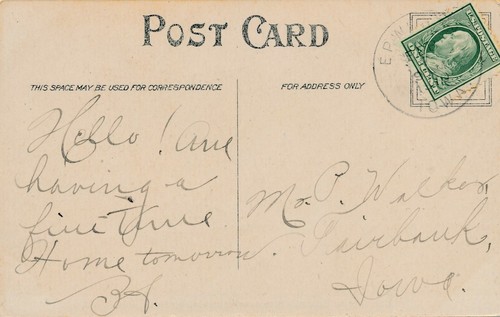 POST CARD
THIS SPACE MAY BE USED FOR CORRESPONDENCE
FOR ADDRESS ONLY
Hello! Are
having a
fine time
Home tomorrow.
Mr. P. Walker,
Fairbank,
Iowa.